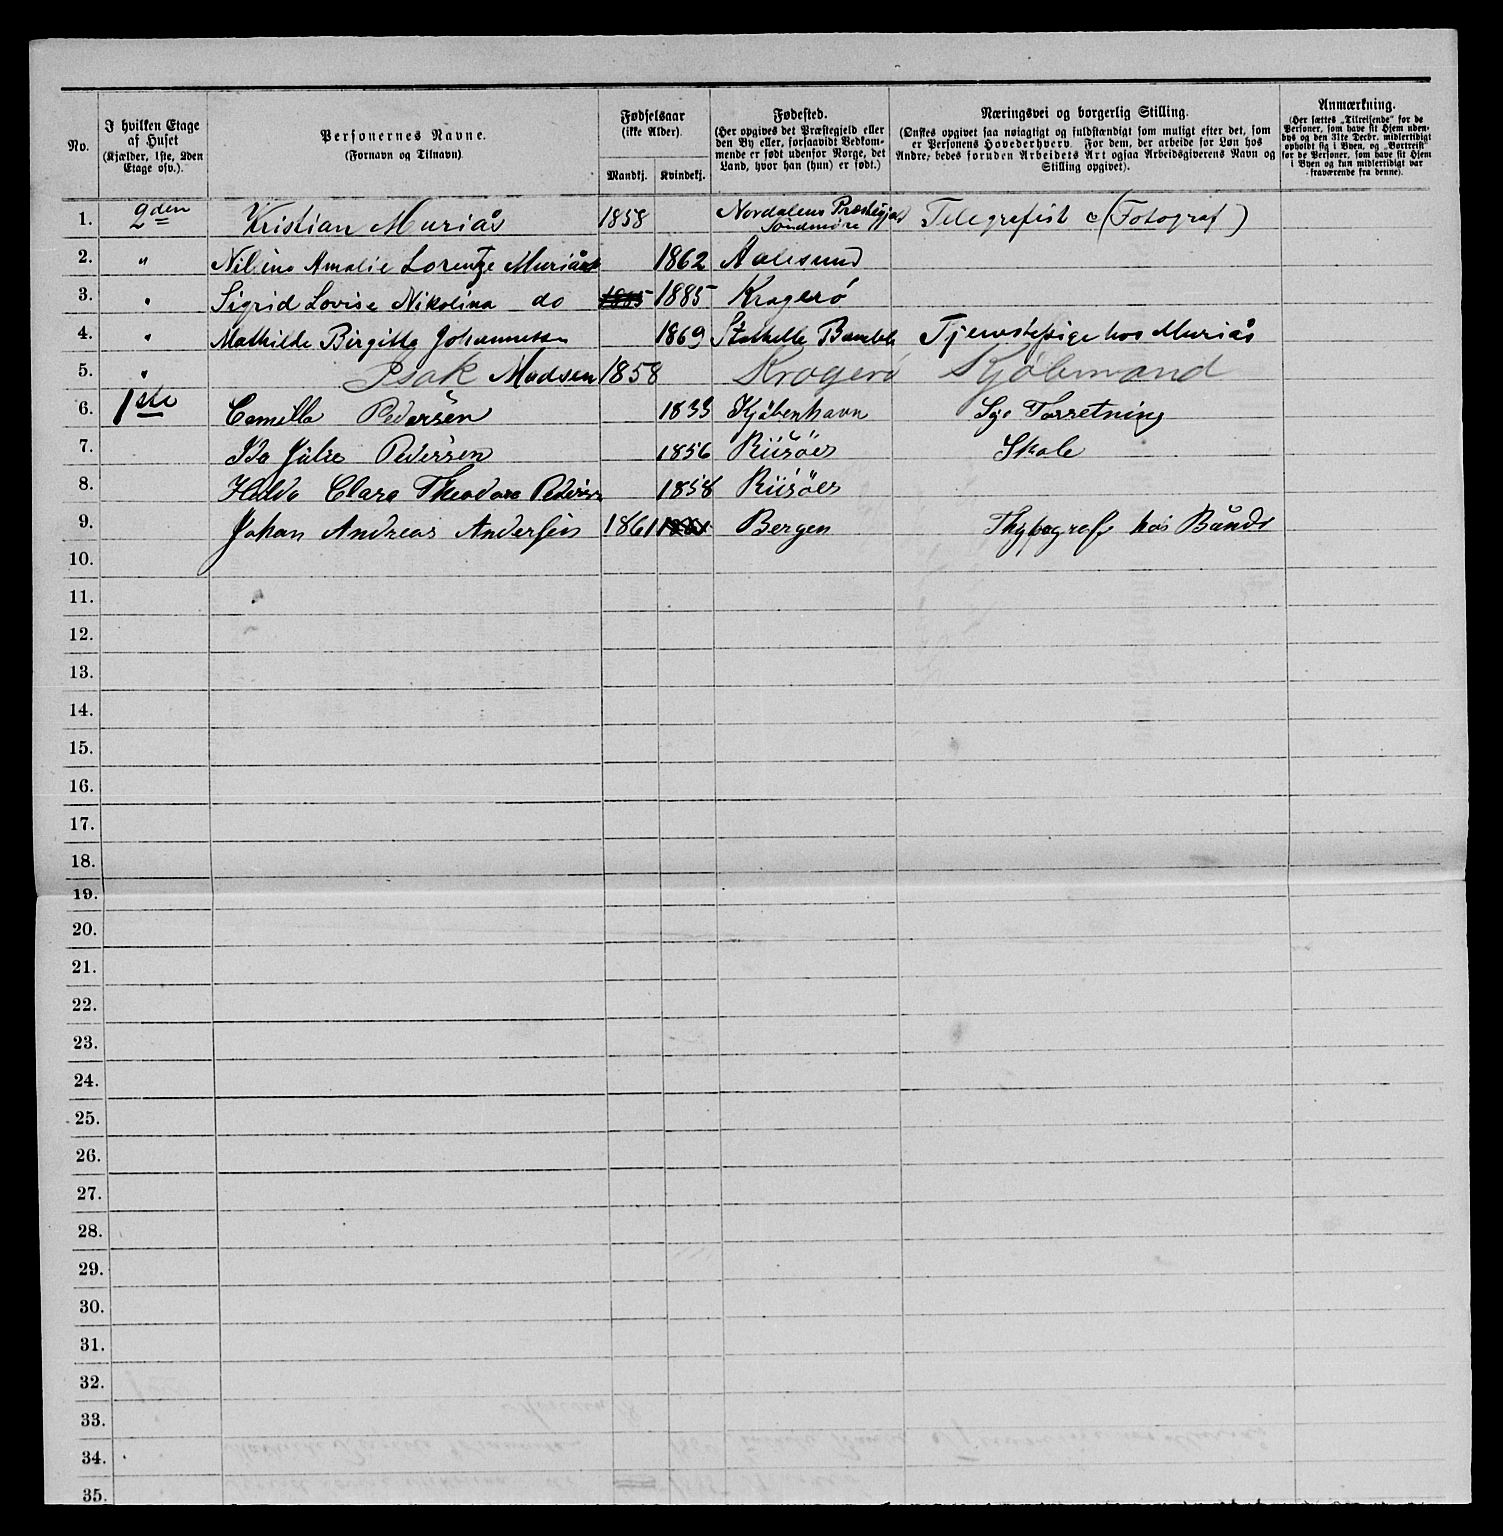 No.
I hvilken Etage
af Huset
(Kjælder, 1ste, 2den
Etage osv.).
Personernes Navne.
(Fornavn og Tilnavn)
Fødselsaar
(ikke Alder).
Mandkj. Kvindekj.
Fødested.
(Her opgives det Præstegjeld eller
den By eller, forsaavidt Vedkom-
mende er født udenfor Norge, det
Land, hvor han (hun) er født.)
Næringsvei og borgerlig Stilling.
(Ønskes opgivet saa nøiagtigt og fuldstændigt som muligt efter det, som
er Personens Hovederhverv. For dem, der arbeide for Løn hos
Andre, bedes foruden Arbeidets Art ogsaa Arbeidsgiverens Navn og
Stilling opgivet).
Anmærkning.
(Her sættes „Tilreisende" for de
Personer, som have sit Hjem uden-
bys og den 31te Decbr. midlertidigt
opholdt sig i Byen, og „Bortreist"
for de Personer, som have sit Hjem
i Byen og kun midlertidigt var
fraværende fra denne).
1. 2den Kristian Muriås 1858 Nordalens Præstegjæl Søndmøre Telegrafist (Fotograf)
2. " Amalie Lorentze Muriås 1862 Aalesund
3. " Sigrid Lovise Nikolina do 1885 1885 Kragerö
4. " Mathilde Birgitte Johannesen 1869 Stathelle Bamble Tjenestepige hos Muriås
5. " Isak Madsen 1858 Kragerö Kjøbmand
6. 1ste Camilla Pedersen 1833 Kjöbenhavn Forretning
7. Ida Julie Pedersen 1856 Riisöer Skole
8. Hulda Clara Theodora Pedersen 1858 Riisöer
9. Johan Andreas Andersen 1861 Bergen Thypograf hos
10.
11.
12.
13.
14.
15.
16.
17.
18.
19.
20.
21.
22.
23.
24.
25.
26.
27.
28.
29.
30.
31.
32.
33.
34.
35.